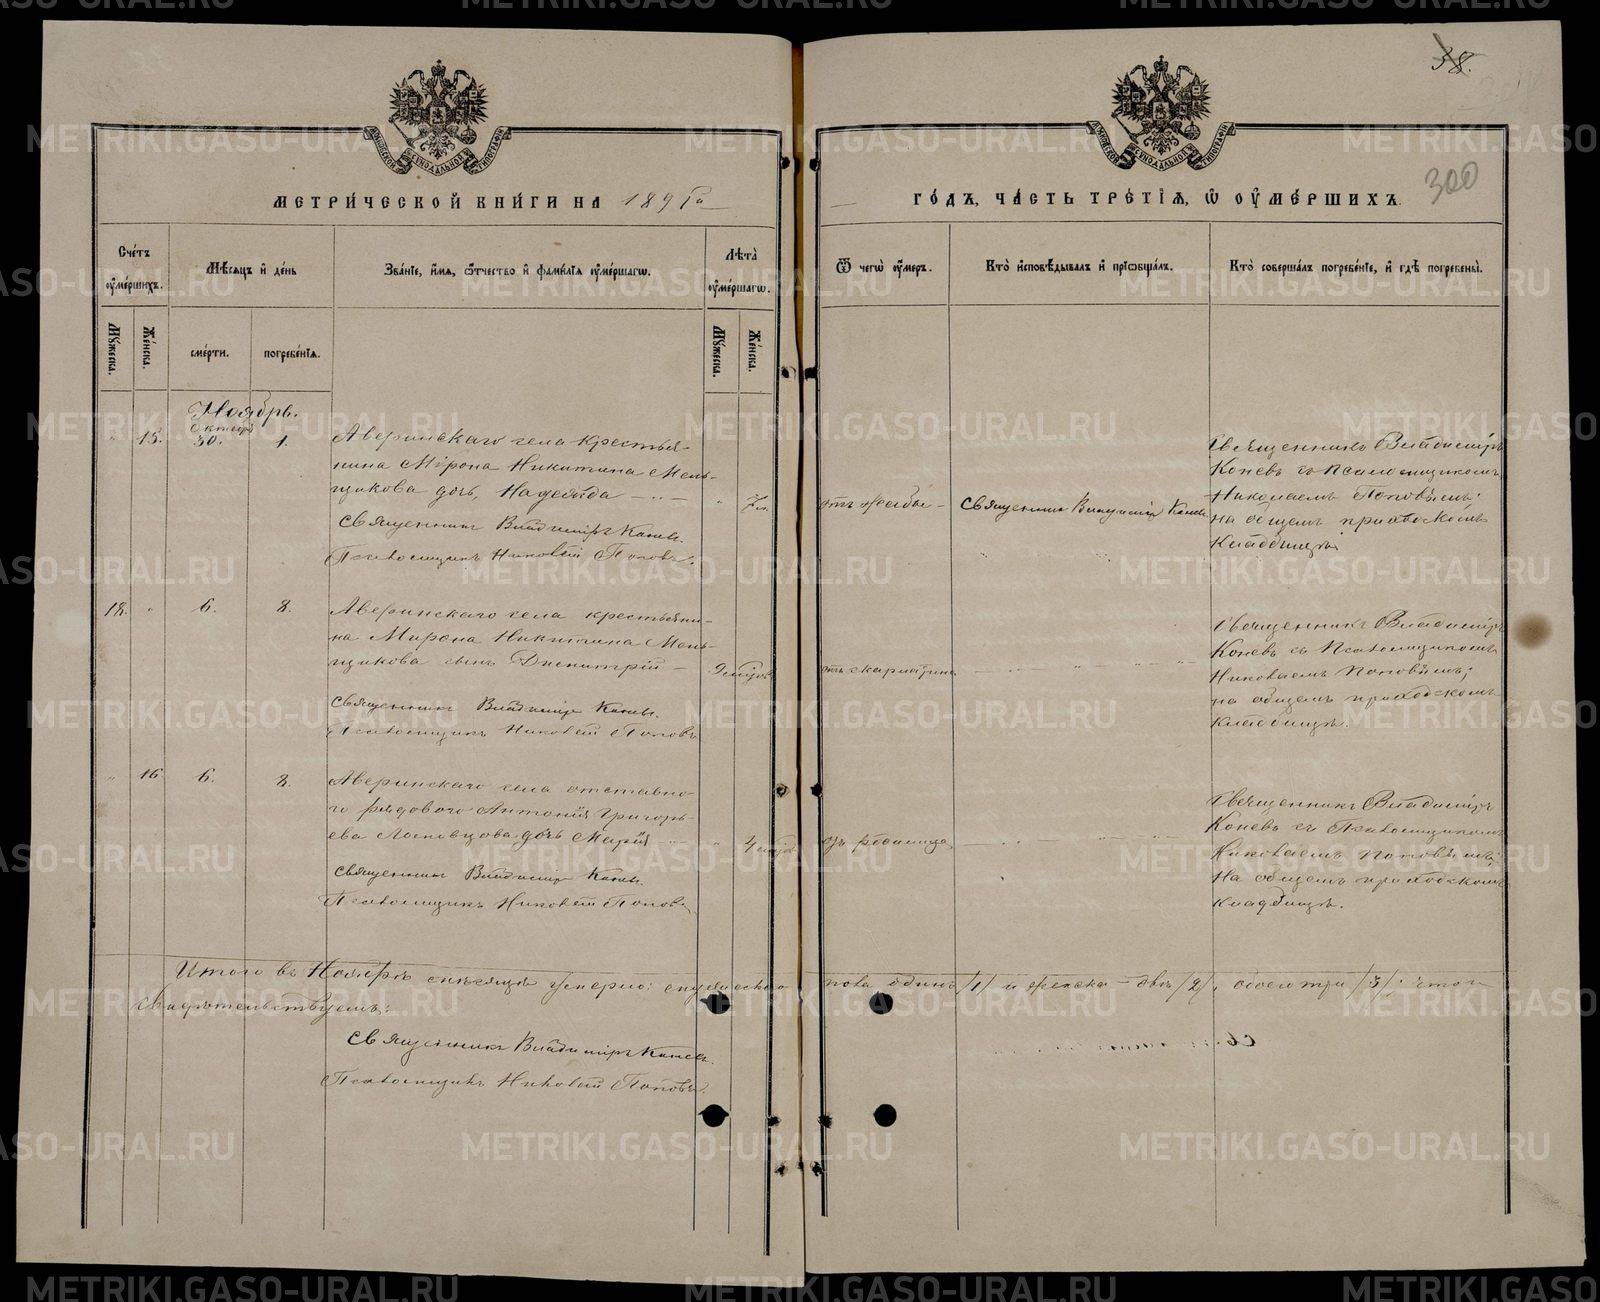 38.
300
МЕТРИ́ЧЕСКОЙ КНИ́ГИ НА 189
ГО́ДЪ, ЧА́СТЬ ТРЕ́ТІѦ, Ѡ ОУ҆МЕ́РШИХЪ.
Сче́тъ оу҆ме́ршихъ.
Мѣ́сяцъ и҆ де́нь
Зва́ніе, и҆́мѧ, ѻ҆́тчество и҆ фами́лїѧ оу҆ме́ршагѡ.
Лѣ́та оу҆ме́ршагѡ.
Ѿ чегѡ̀ оу҆́меръ.
Кто̀ и҆сповѣ́дывалъ и҆ прїѡбща́лъ.
Кто̀ соверша́лъ погребе́ніе, и҆ гдѣ̀ погребены̀.
Мꙋ́жеска.
Же́нска.
сме́рти.
погребе́нїѧ.
Мꙋ́жеска.
Же́нска.
Ноябрь.
15.
Октября
30.
1.
Аверинскаго села крестья-
нина Мирона Никитина Мель-
щикова дочь, Надежда
Священникъ Владиміръ Коневъ.
Псаломщикъ Николай Поповъ.
отъ
Священникъ Владиміръ Коневъ
Священникъ Владиміръ
Коневъ съ псаломщикомъ
Николаемъ Поповымъ;
на общемъ приходскомъ
кладбищѣ.
18.
6.
8.
Аверинскаго села крестьяни-
на Мирона Никитина Мель-
щикова сынъ Димитрій
Священникъ Владиміръ Коневъ.
Псаломщикъ Николай Поповъ
отъ скарлатины
Священникъ Владиміръ
Коневъ съ Псаломщикомъ
Николаемъ Поповымъ;
на общемъ приходскомъ
кладбищѣ.
16
6.
8.
Аверинскаго села отставно-
го рядового Антонія Григорь-
ева дочь Марія
Священникъ Владиміръ Коневъ.
Псаломщикъ Николай Поповъ
4
отъ родимца
Священникъ Владиміръ
Коневъ съ Псаломщикомъ
Николаемъ Поповымъ;
На общемъ приходскомъ
кладбищѣ.
Итого въ Ноябрѣ мѣсяцѣ умерло: мужескаго пола одинъ /1/ и женска - двѣ /2/, обоего три /3/. Въ чемъ
свидѣтельствуемъ:
Священникъ Владиміръ Коневъ.
Псаломщикъ Николай Поповъ.
METRIKI.GASO-URAL.RU